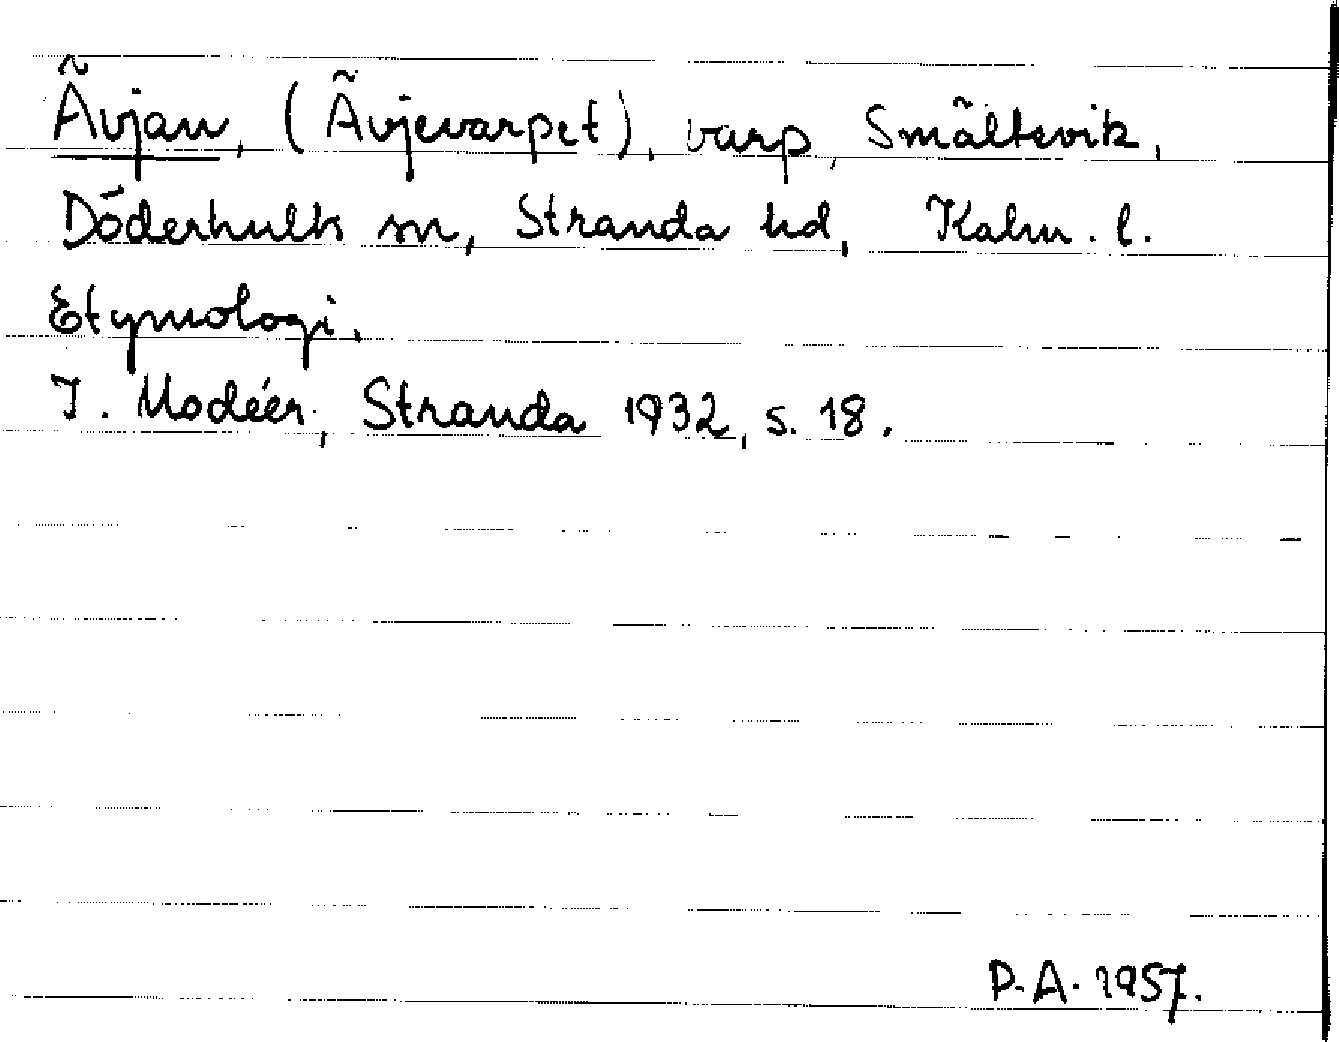 Ävjan, (Ävjevarpet), varp, Smältevik,
Döderhults sn, Stranda hd, Kalm. l.
Etymologi.
I. Modéer, Stranda 1932, s. 18.
P.A. 1957.